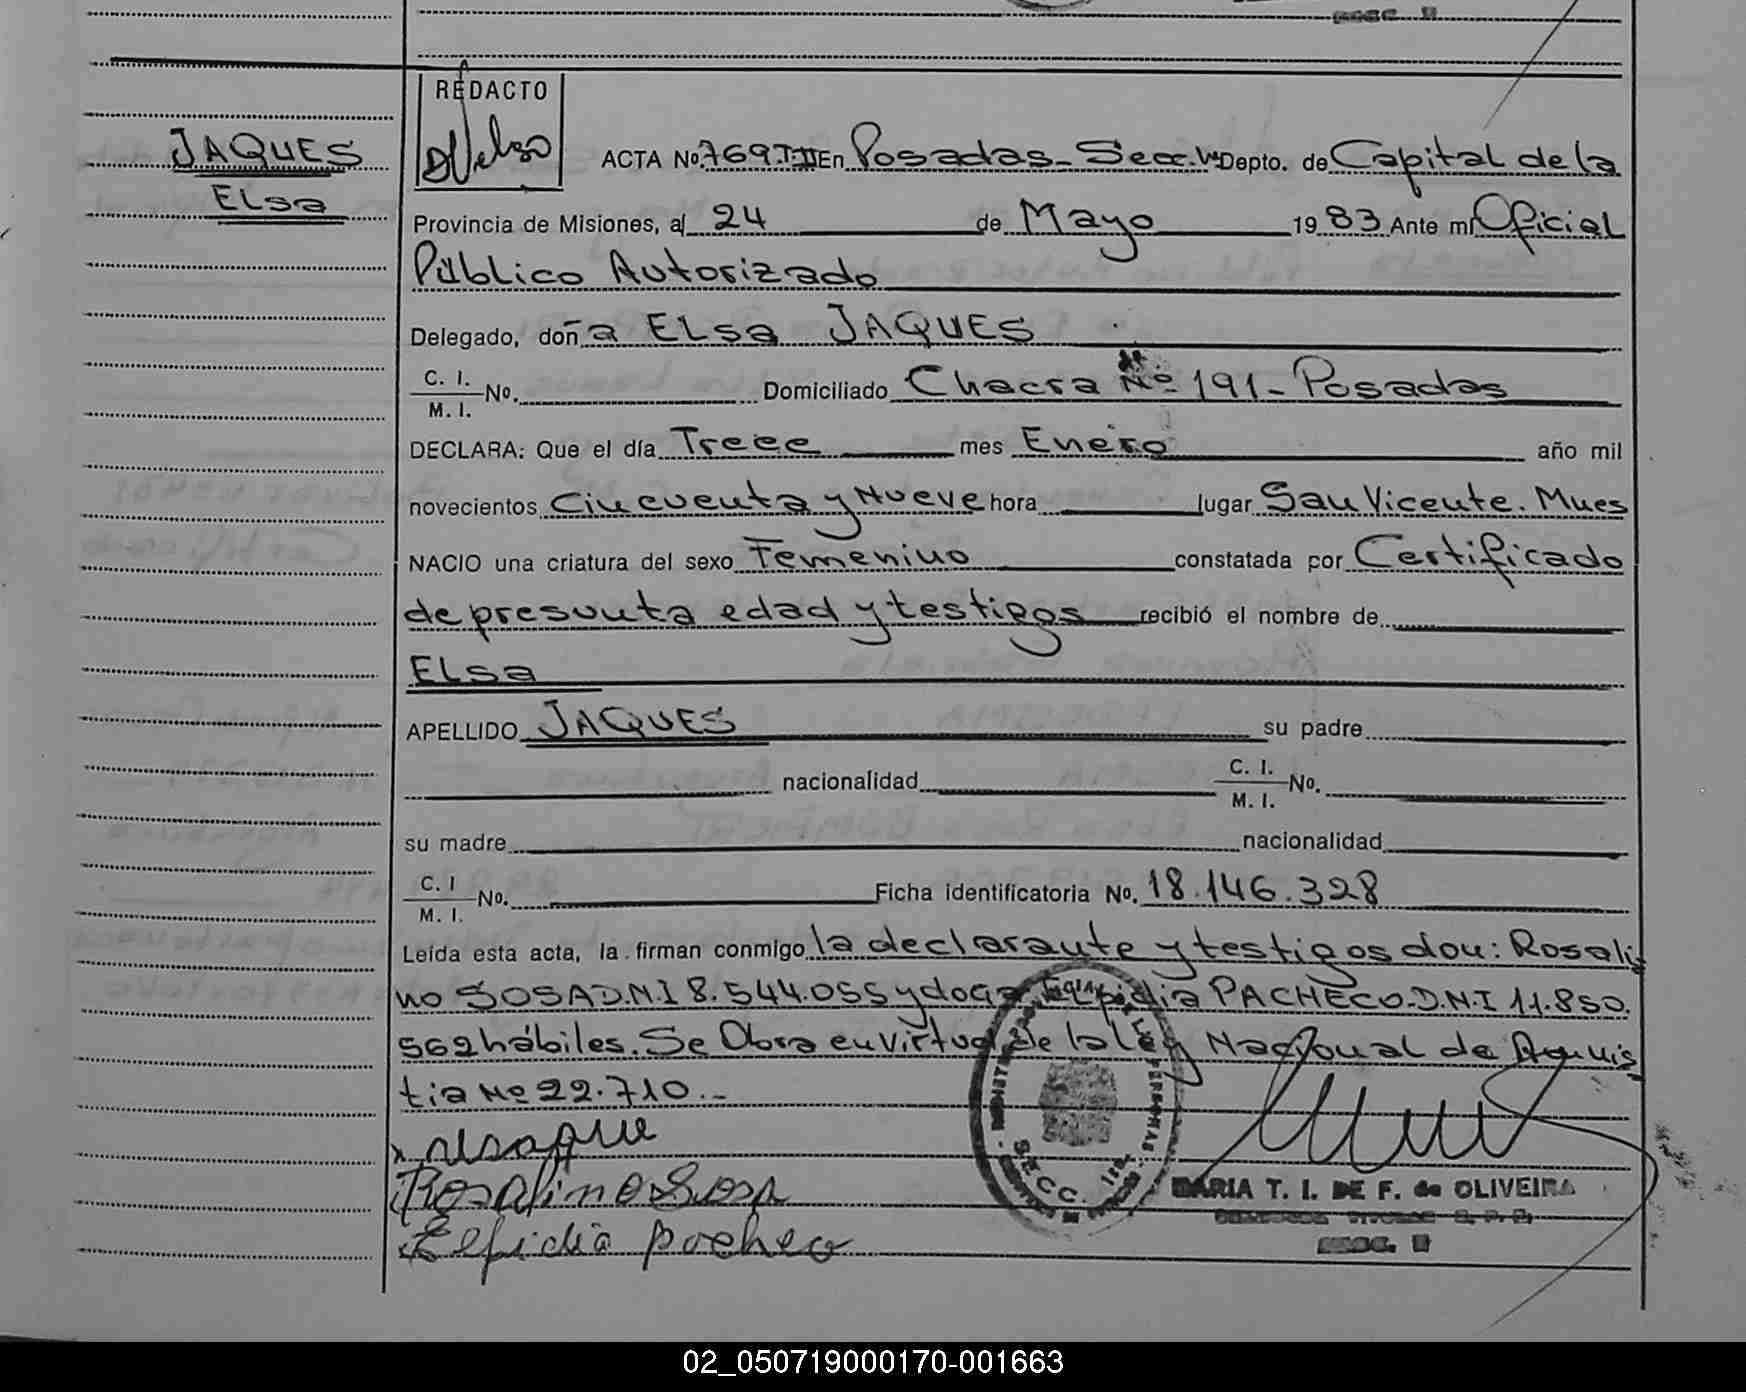 JAQUES
ELsa
REDACTO
ACTA No. 769.T:II En Posadas - Secc. Vª Depto. de Capital de la
Provincia de Misiones, a 24 de Mayo 1983 Ante mi Oficial
Público Autorizado
Delegado, doña ELsa JAQUES
C. I. M. I. No. Domiciliado Chacra Nº 191 - Posadas
DECLARA: Que el día Trece mes Enero año mil
novecientos Cincuenta y Nueve hora lugar San Vicente. Mnes
NACIO una criatura del sexo Femenino constatada por Certificado
de presunta edad y testigos recibió el nombre de
ELsa
APELLIDO JAQUES su padre
nacionalidad C. I. M. I. No.
su madre nacionalidad
C. I M. I. No. Ficha identificatoria No. 18.146.328
Leída esta acta, la firman conmigo la declarante y testigos don: Rosali
no SOSA D.N.I 8.544.055 y doña Elpidia PACHECO. D.N.I 11.850.
562 hábiles. Se Obra en virtud de la Ley Nacional de Amnis
tia Nº 22.710.-
Rosalino Sosa
Elpidia pacheco
SECC.
MARIA T. I. DE F. de OLIVEIRA
SECC.
02_050719000170-001663